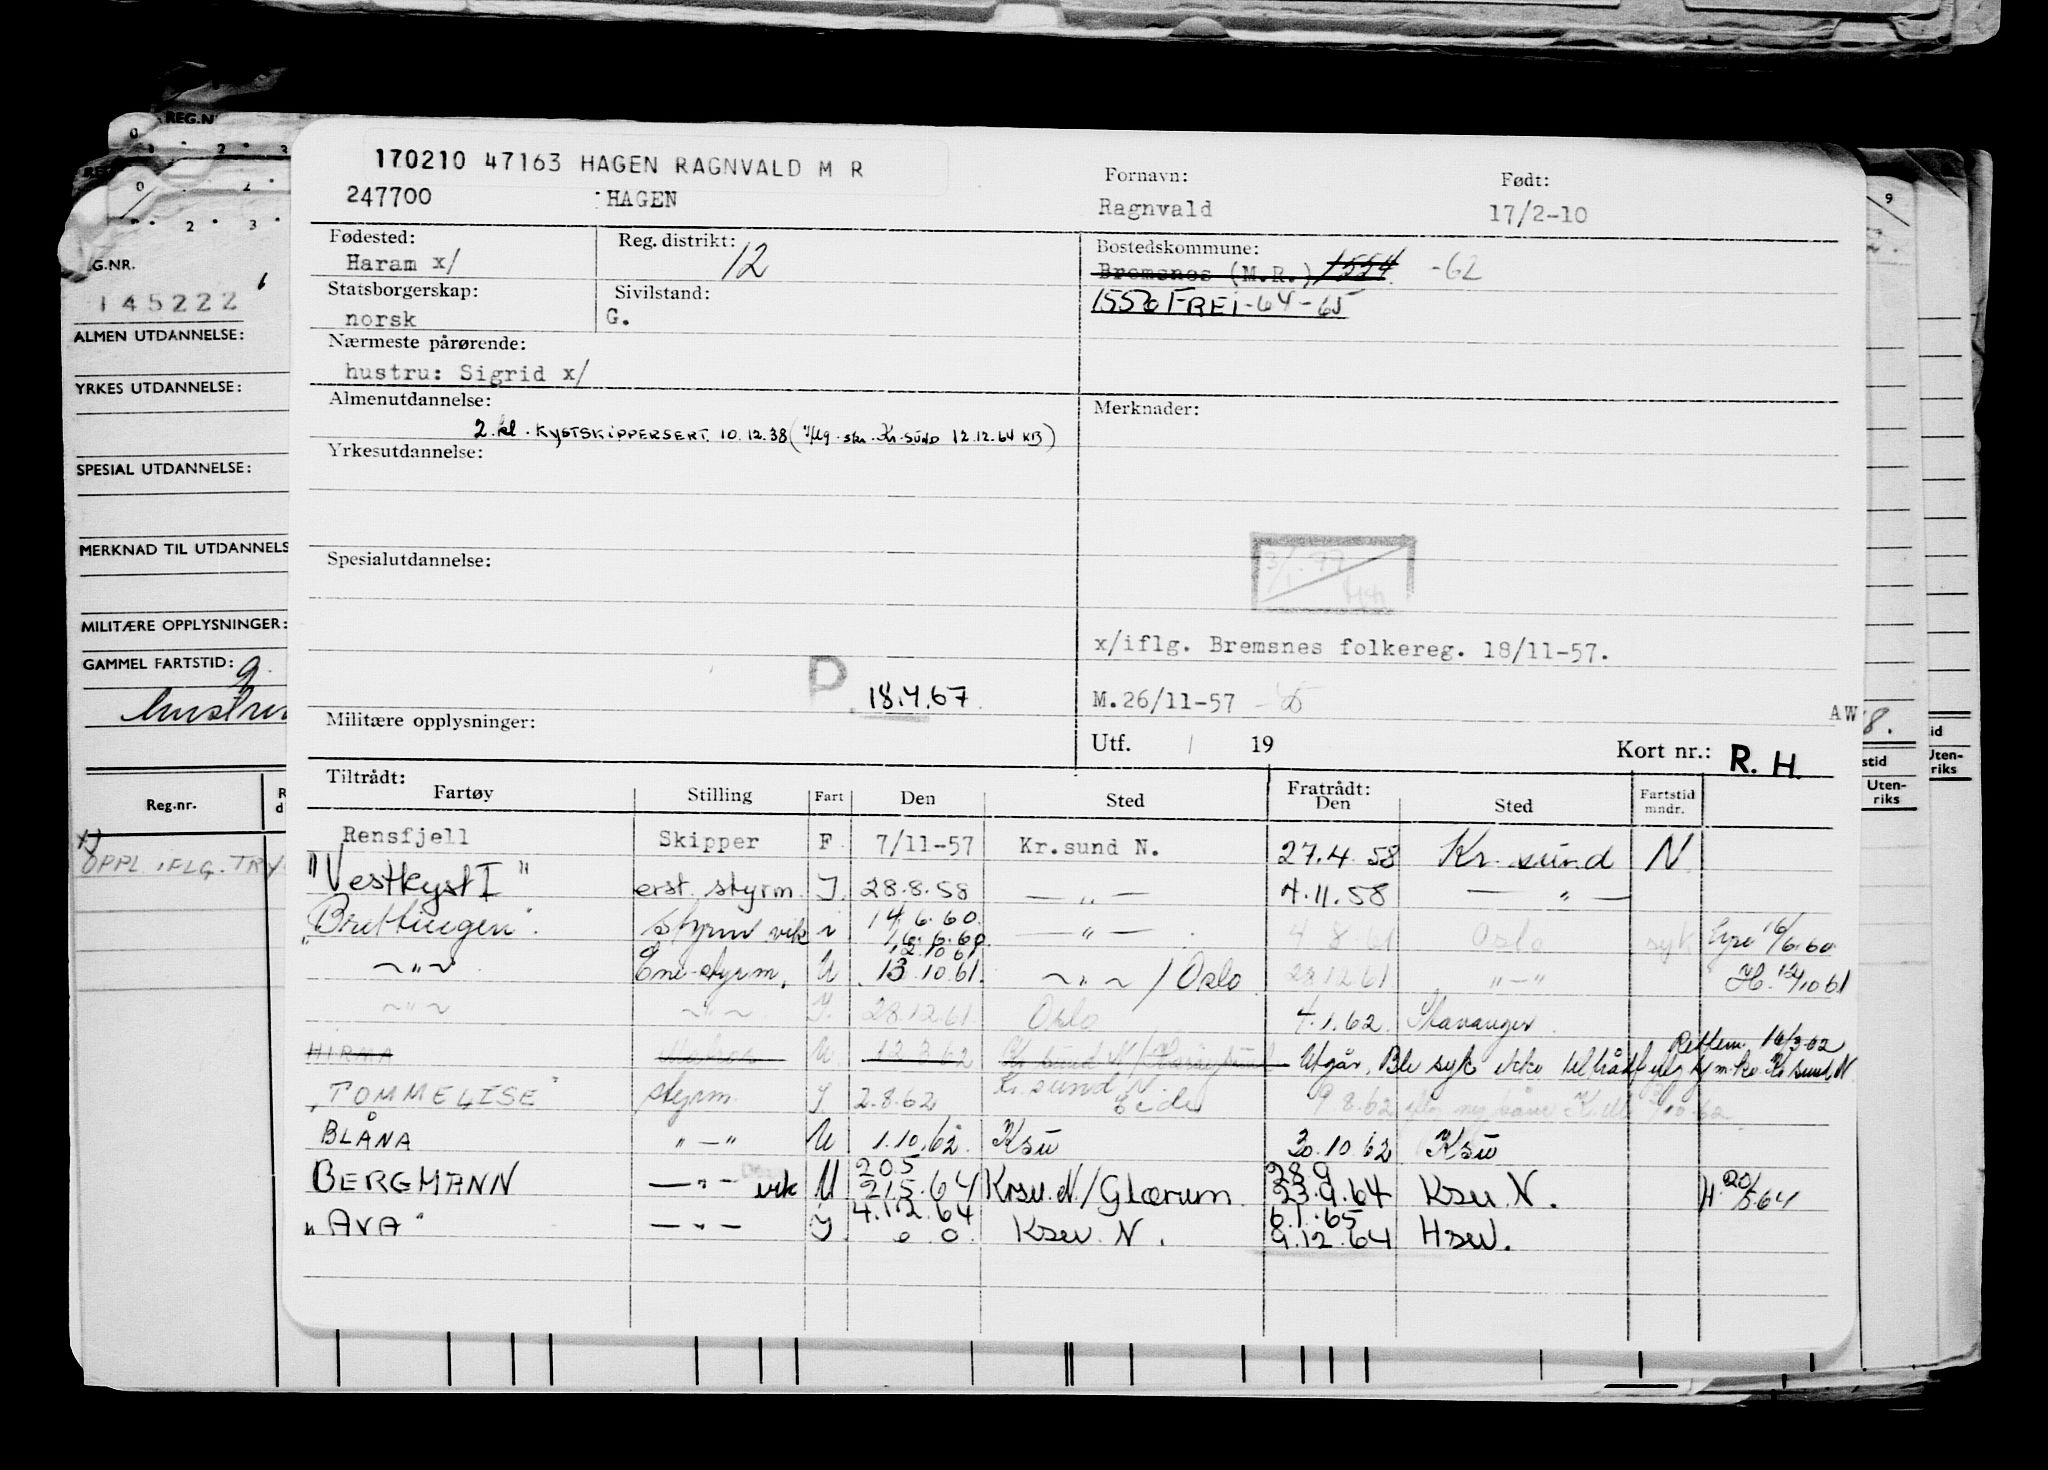 170210 47163 HAGEN RAGNVALD M R
247700 HAGEN
Fornavn: Født:
Ragnvald 17/2-10
Fødested: Reg. distrikt: Bostedskommune:
Haram x/ 12 Bremsnes (M.R.) 1554 -62
Statsborgerskap: Sivilstand: 1556 FREI-64-65
norsk G.
Nærmeste pårørende:
hustru: Sigrid x/
Almenutdannelse: Merknader:
2. kl. KYSTSKIPPERSERT. 10.12.38 (iflg. skr. Kr.SUND 12.12.64 KB)
Yrkesutdannelse:
Spesialutdannelse:
x/iflg. Bremsnes folkereg. 18/11-57.
P. 18.4.67 M.26/11-57
AW
Militære opplysninger: Utf. 19 Kort nr.: R. H.
Tiltrådt: Fratrådt:
Fartøy Stilling Fart Den Sted Den Sted Fartstid mndr.
Rensfjell Skipper F 7/11-57 Kr.sund N. 27.4.58 Kr. sund N
"Vestkyst I" erst. styrm. I. 28.8.58 — " — 4.11.58 — " —
"Brattingen". styrm vik i 14.6.60. 16.6.60. — " — 4 8 61 Oslo syk 16/6.60
~ " ~ Ene-styrm, U 12.10.61 13.10.61. ~ " ~ / Oslo 28.12.61 " — " H. 12/10 61
~ " ~ ~ " ~ I. 28.12.61. Oslo 4.1.62. Stavanger.
HIRMA Matros U. 13 3 62 Kr.sund N / Utgår, Ble syk ikke tiltrådt Kr sund N. Rettem. 16/3-62
"TOMMELISE" styrm. I. 2.8.62 Kr. sund N. 9.8.62
BLÅNA " — " U 1.10.62 Ksu 30.10 62 Ksu
BERGMANN — " — vik U 205 21.5.64 Krsu.N/Glærum 289 23.9.64 Ksu. N. H. 20/5 64
"AVA" — " — I. 4.12.64 Ksu. N. 6.1.65 9.12.64 Hsu.
REG.N
0 2 3
REG.NR.
145222 6
ALMEN UTDANNELSE:
YRKES UTDANNELSE:
SPESIAL UTDANNELSE:
MERKNAD TIL UTDANNELS
MILITÆRE OPPLYSNINGER:
GAMMEL FARTSTID: 9.
Reg.nr.
x)
OPPL. IFLG. TRY
9
8.
stid
Uten-
riks
id
Uten-
riks